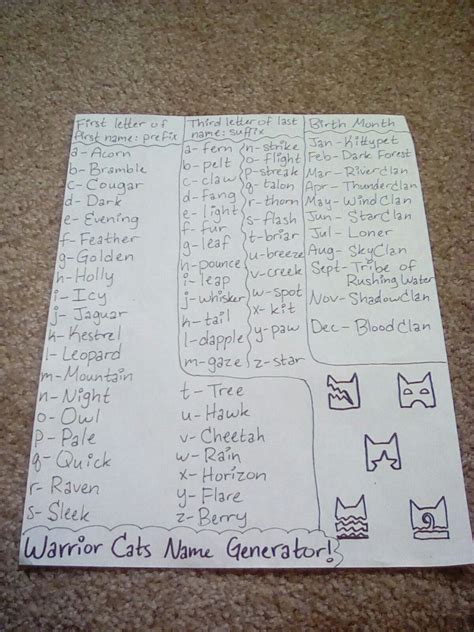 First letter of
first name: prefix
a- Acorn
b- Bramble
c- Cougar
d- Dark
e- Evening
f- Feather
g- Golden
h- Holly
i- Icy
j- Jaguar
k- Kestrel
l- Leopard
m- Mountain
n- Night
o- Owl
p- Pale
q- Quick
r- Raven
s- Sleek
t- Tree
u- Hawk
v- Cheetah
w- Rain
x- Horizon
y- Flare
z- Berry
Third letter of last
name: suffix
a- fern
b- pelt
c- claw
d- fang
e- light
f- fur
g- leaf
h- pounce
i- leap
j- whisker
k- tail
l- dapple
m- gaze
n- strike
o- flight
p- streak
q- talon
r- thorn
s- flash
t- briar
u- breeze
v- creek
w- spot
x- kit
y- paw
z- star
Birth Month
Jan- Kittypet
Feb- Dark Forest
Mar- RiverClan
Apr- ThunderClan
May- WindClan
Jun- StarClan
Jul- Loner
Aug- SkyClan
Sept- Tribe of
Rushing Water
Nov- ShadowClan
Dec- BloodClan
Warrior Cats Name Generator!